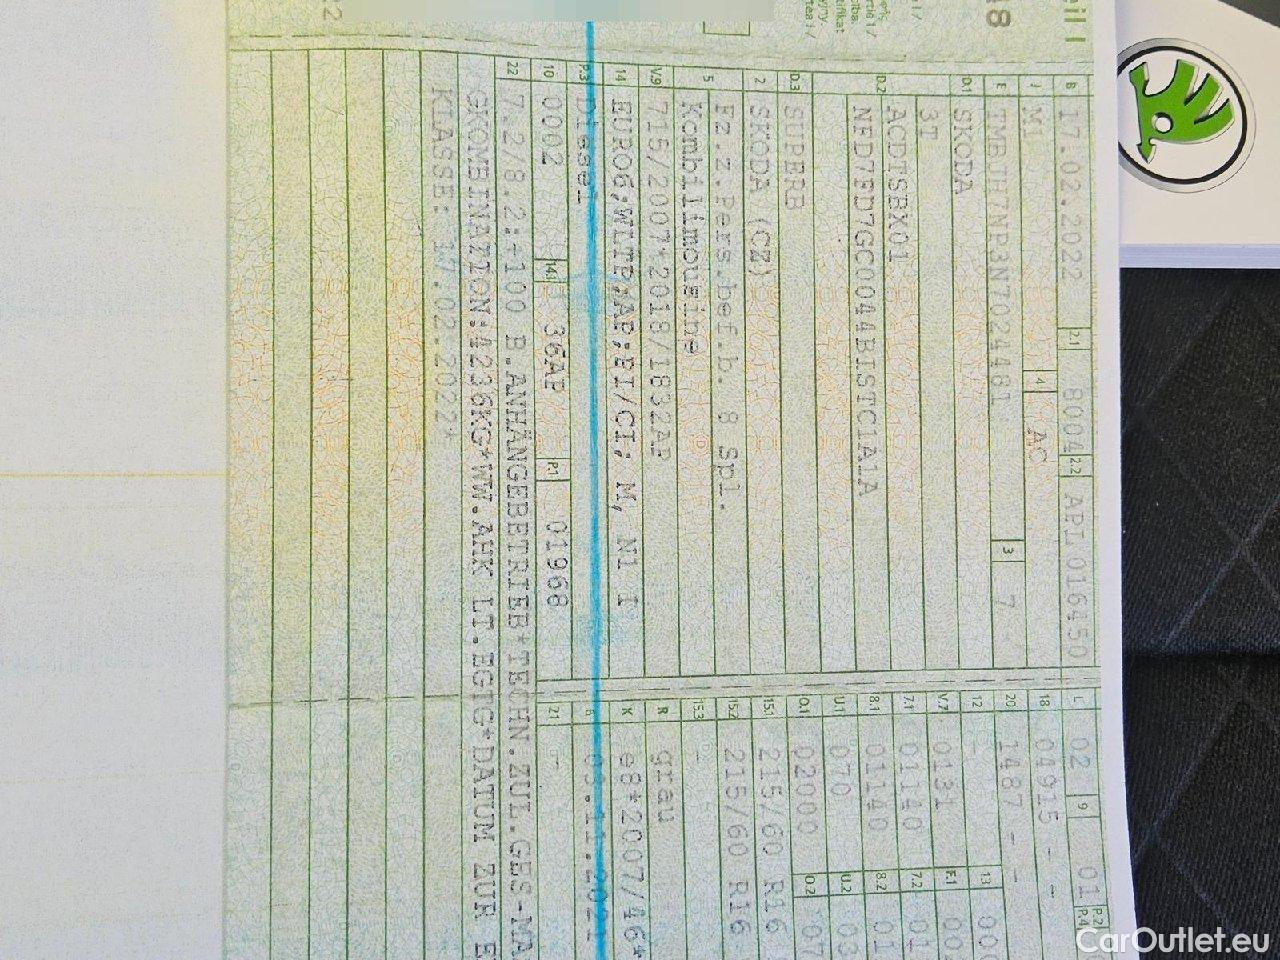 eil I
B 17.02.2022 2.1 8004 2.2 APL016450
J M1 4 AC
E TMBJH7NP3N7024481 3 7
D.1 SKODA
3T
D.2 ACDTSBX01
NFD7FD7GC0044BISTC1A1A
D.3 SUPERB
2 SKODA (CZ)
5 Fz.z.Pers.bef.b. 8 Spl.
Kombilimousine
V.9 715/2007*2018/1832AP
14 EURO6;WLTP;AP;PI/CI; M, N1 I
P.3 Diesel
10 0002 14.1 36AP P.1 01968
22 7.2/8.2:+100 B.ANHÄNGEBETRIEB*TECHN.ZUL.GES-MA
GKOMBINATION:4236KG*WW.AHK LT.EGTG*DATUM ZUR E
KLASSE: 17.02.2022*
L 02 9 01 P.2 P.4
18 04915 -
20 1487 - -
12 - 13 00
V.7 0131 F.1 00
7.1 01140 7.2 01
8.1 01140 8.2 01
U.1 070 U.2 03
O.1 02000 O.2 07
15.1 215/60 R16
15.2 215/60 R16
15.3 -
R grau
K e8*2007/46*
6 03.11.2021
21 -
CarOutlet.eu